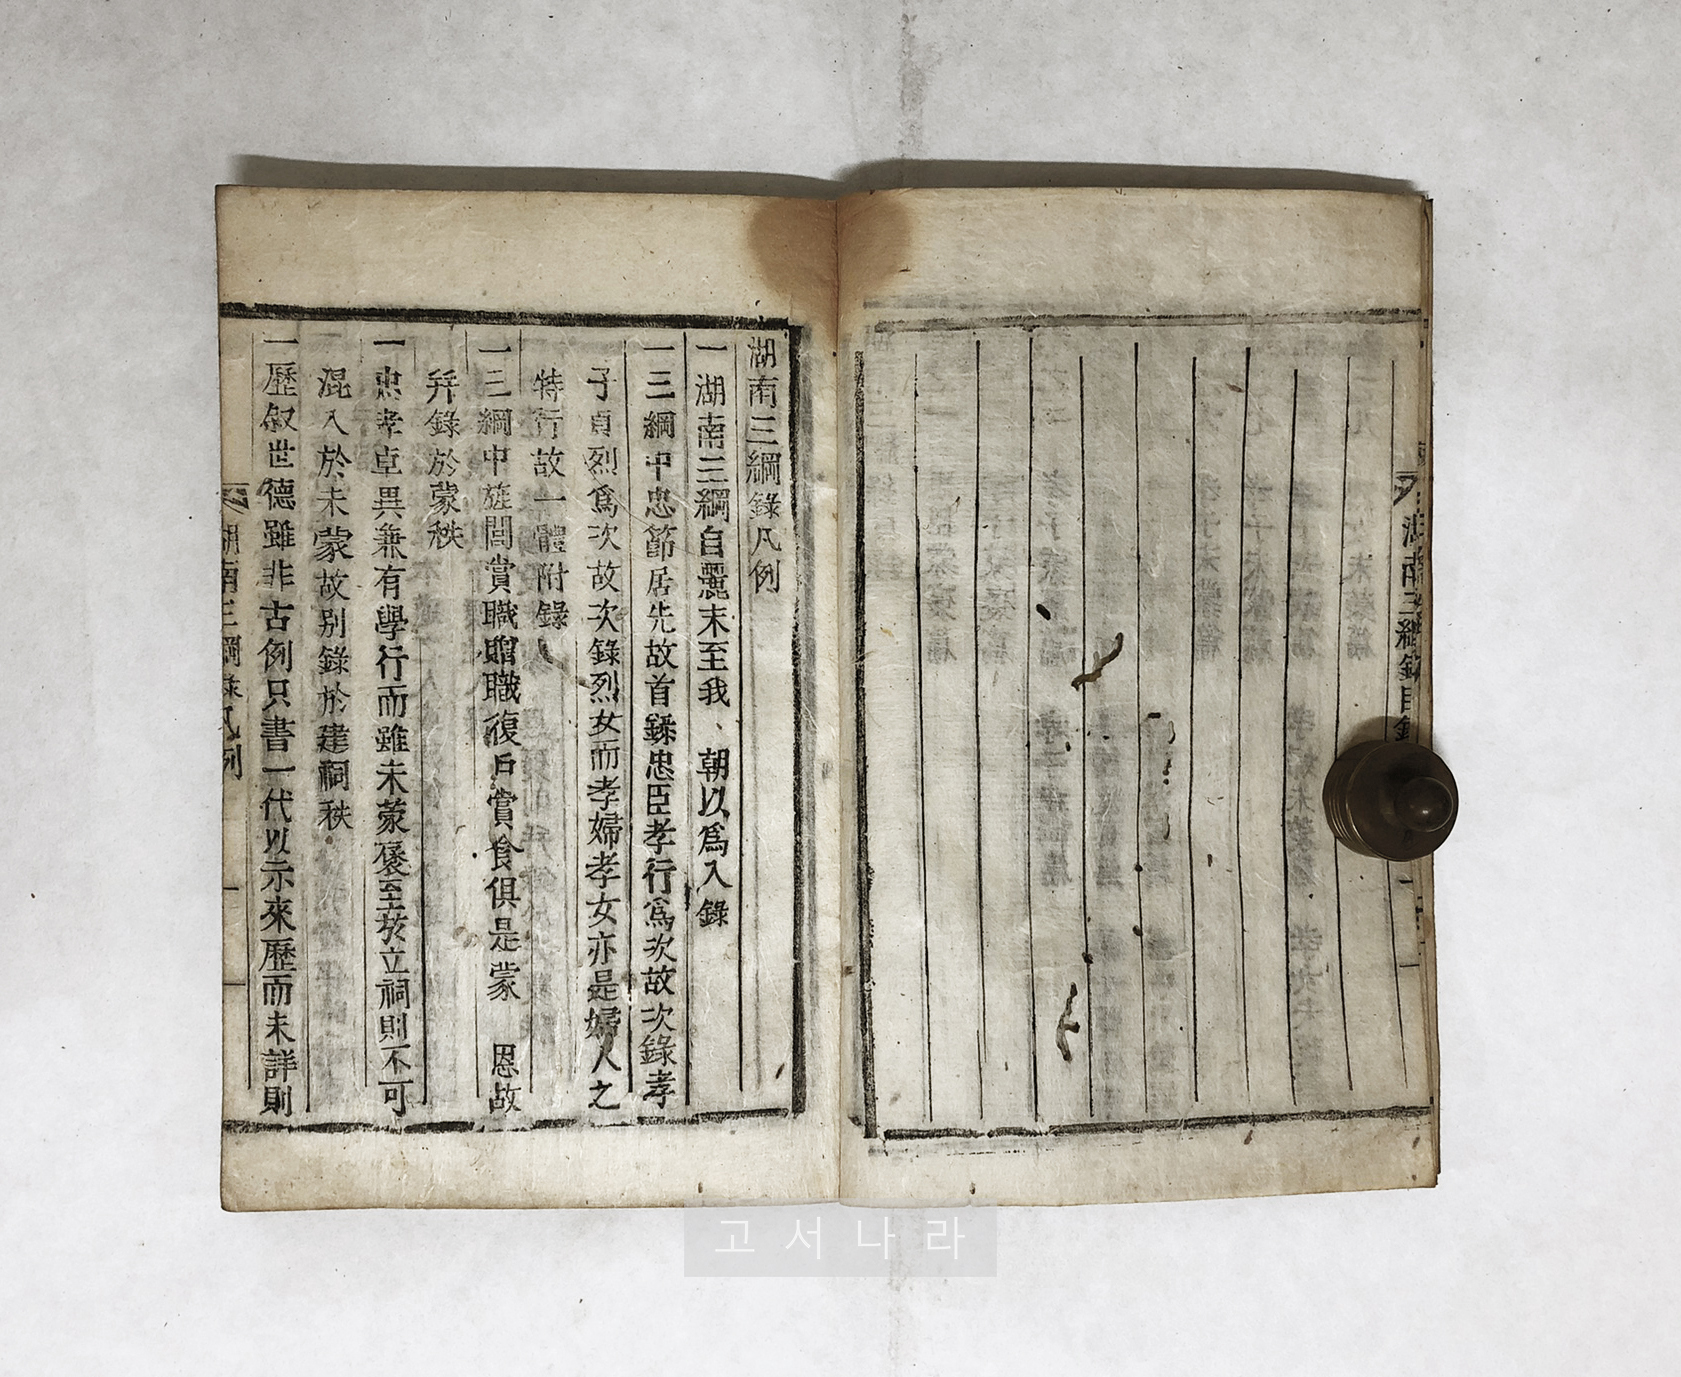 湖南三綱錄目錄
湖南三綱錄凡例
一湖南三綱自麗末至我、朝以爲入錄
一三綱中忠節居先故首錄忠臣孝行爲次故次錄孝
子貞烈爲次故次錄烈女而孝婦孝女亦是婦人之
特行故一體附錄
一三綱中旌閭賞職贈職復戶賞食俱是蒙 恩故
并錄於蒙秩
一忠孝卓異兼有學行而雖未蒙褒至於立祠則不可
混入於未蒙故別錄於建祠秩
一歷叙世德雖非古例只書一代以示來歷而未詳則
湖南三綱錄凡例
一
고서나라